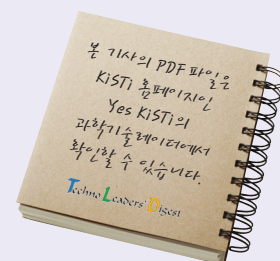 본 기사의 PDF 파일은
KiSTi 홈페이지인
Yes KiSTi의
과학기술레이더에서
확인할 수 있습니다.
Techno Leaders' Digest